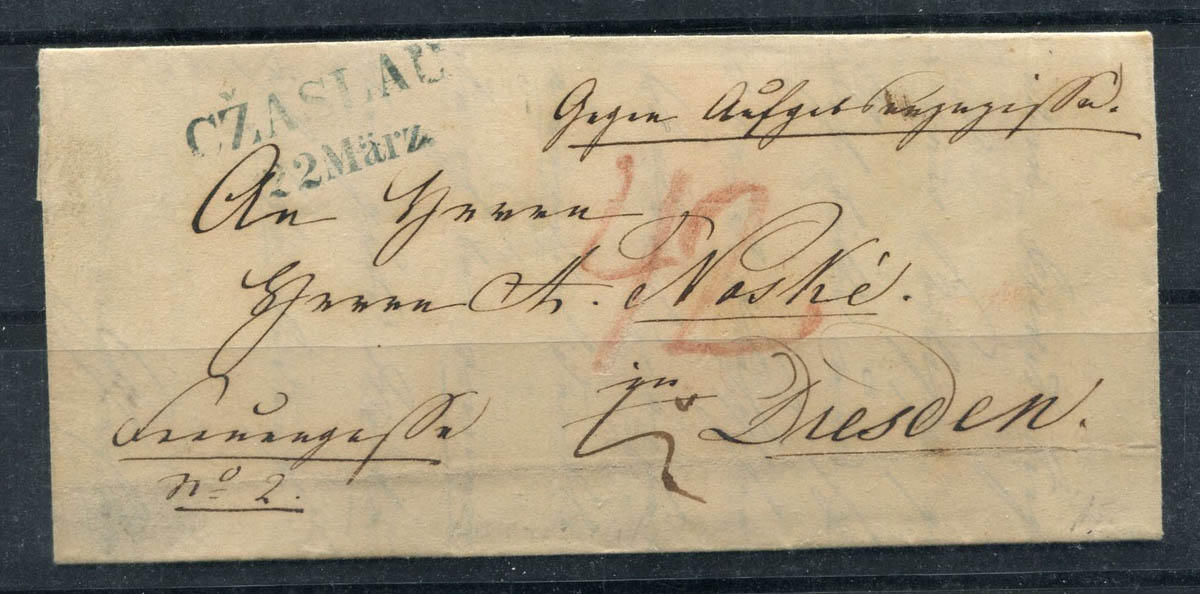 CŽASLAU
22 März.
Gegen Aufgabsrezepisse.
An Herrn
Herrn A. Noské.
42
in Dresden.
Frauengasse
No 2.